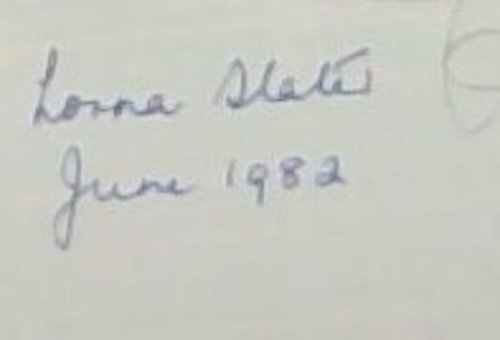 Lorna Slater
June 1982